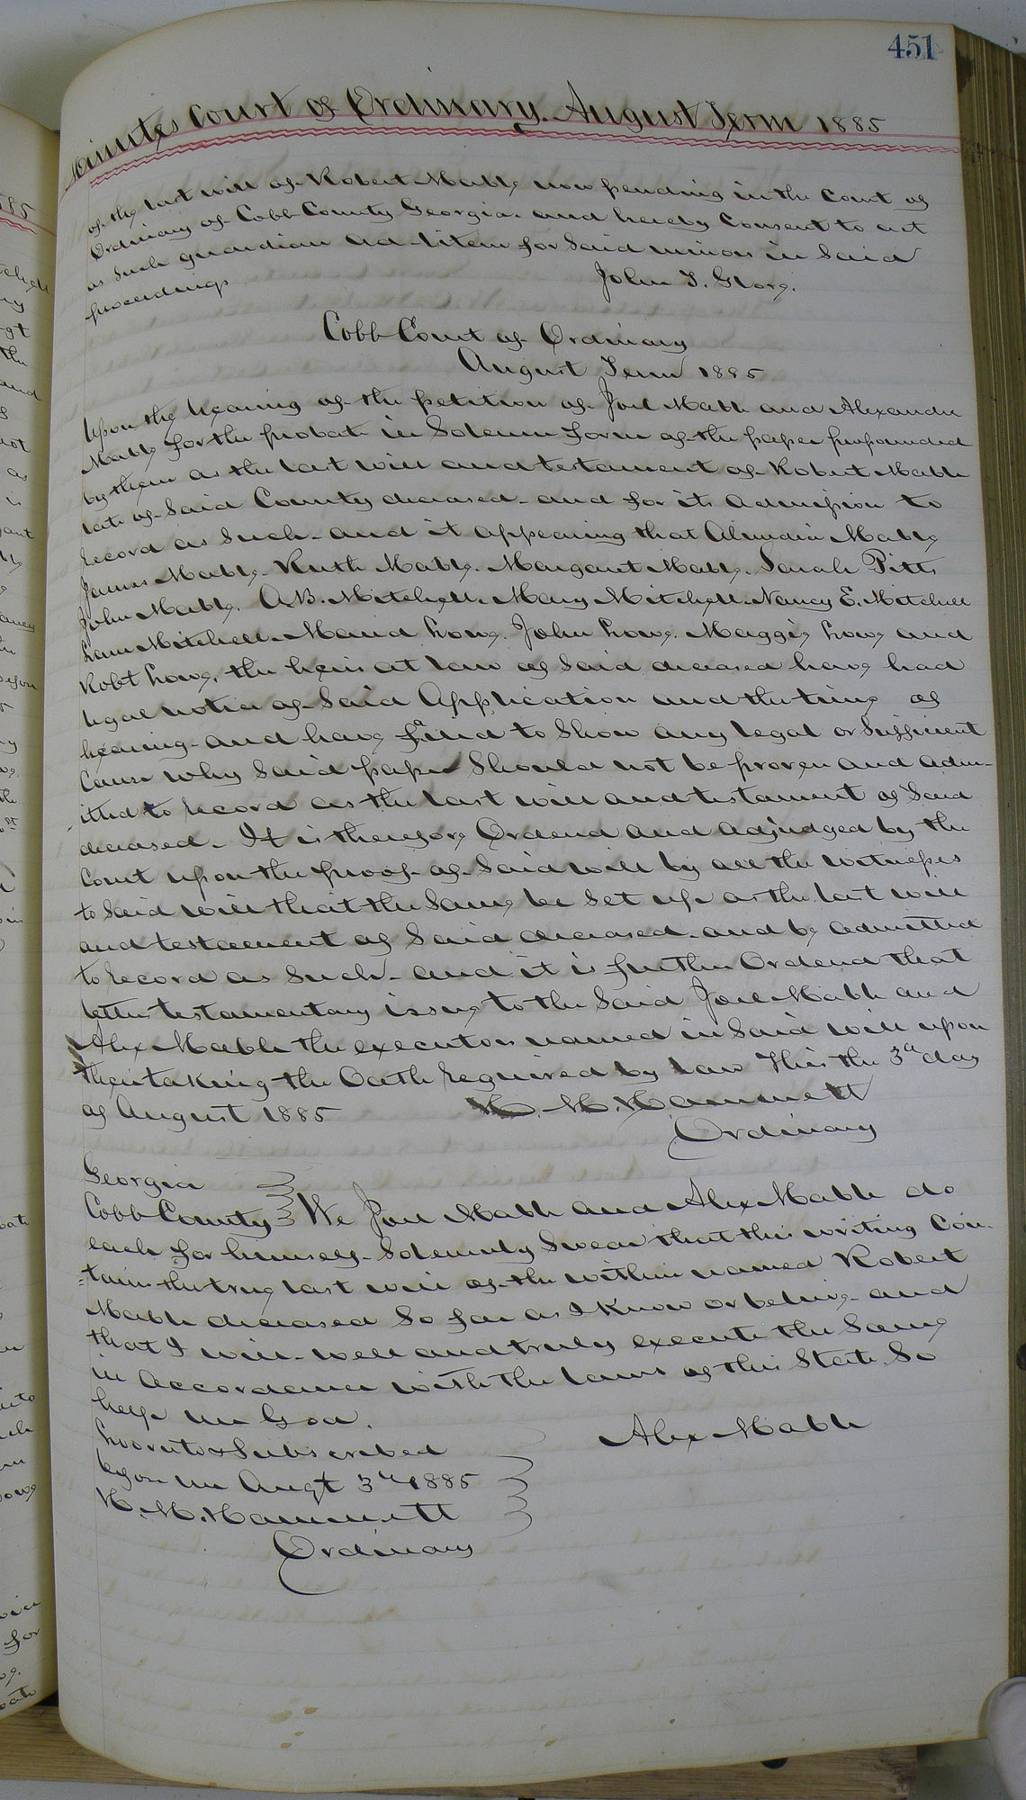 451
Minutes Court of Ordinary, August Term 1885
of the last will of Robert Mable now pending in the Court of
Ordinary of Cobb County Georgia, and hereby Consent to act
as such guardian ad litem for said minors in said
proceedings
John T. Glore.
Cobb Court of Ordinary
August Term 1885
Upon the hearing of the petition of Joel Mable and Alexander
Mable for the probate in Solemn form of the paper propounded
by them as the last will and testament of Robert Mable
late of said County deceased - and for its admission to
record as such - and it appearing that Mable
James Mable. Ruth Mable. Margaret Mable. Sarah Pitts
John Mable. A.B. Mitchell. Mary Mitchell. Nancy E. Mitchell
Mitchell. Maud Lowe. John Lowe. Maggie Lowe and
Robt Lowe, the heirs at law of said deceased have had
legal notice of said application and the time of
hearing - and have failed to show any legal or sufficient
Cause why said paper should not be proven and adm-
itted to record as the last will and testament of said
deceased - It is therefore Ordered and adjudged by the
Court upon the proof of said will by all the witnesses
to said will that the same be set up as the last will
and testament of said deceased - and be admitted
to record as such - and it is further Ordered that
letters testamentary issue to the said Joel Mable and
Alex Mable the executors named in said will upon
their taking the Oath required by law This the 3d day
of August 1885
H. M. Hammett
Ordinary
Georgia
Cobb County We Joel Mable and Alex Mable do
each for himself solemnly swear that this writing Con-
=tains the true last will of the within named Robert
Mable deceased so far as I know or believe - and
that I will - well and truly execute the same
in accordance with the laws of this State. So
help me God.
Sworn to & subscribed
before me Augt 3d 1885
H. M. Hammett
Ordinary
Alex Mable